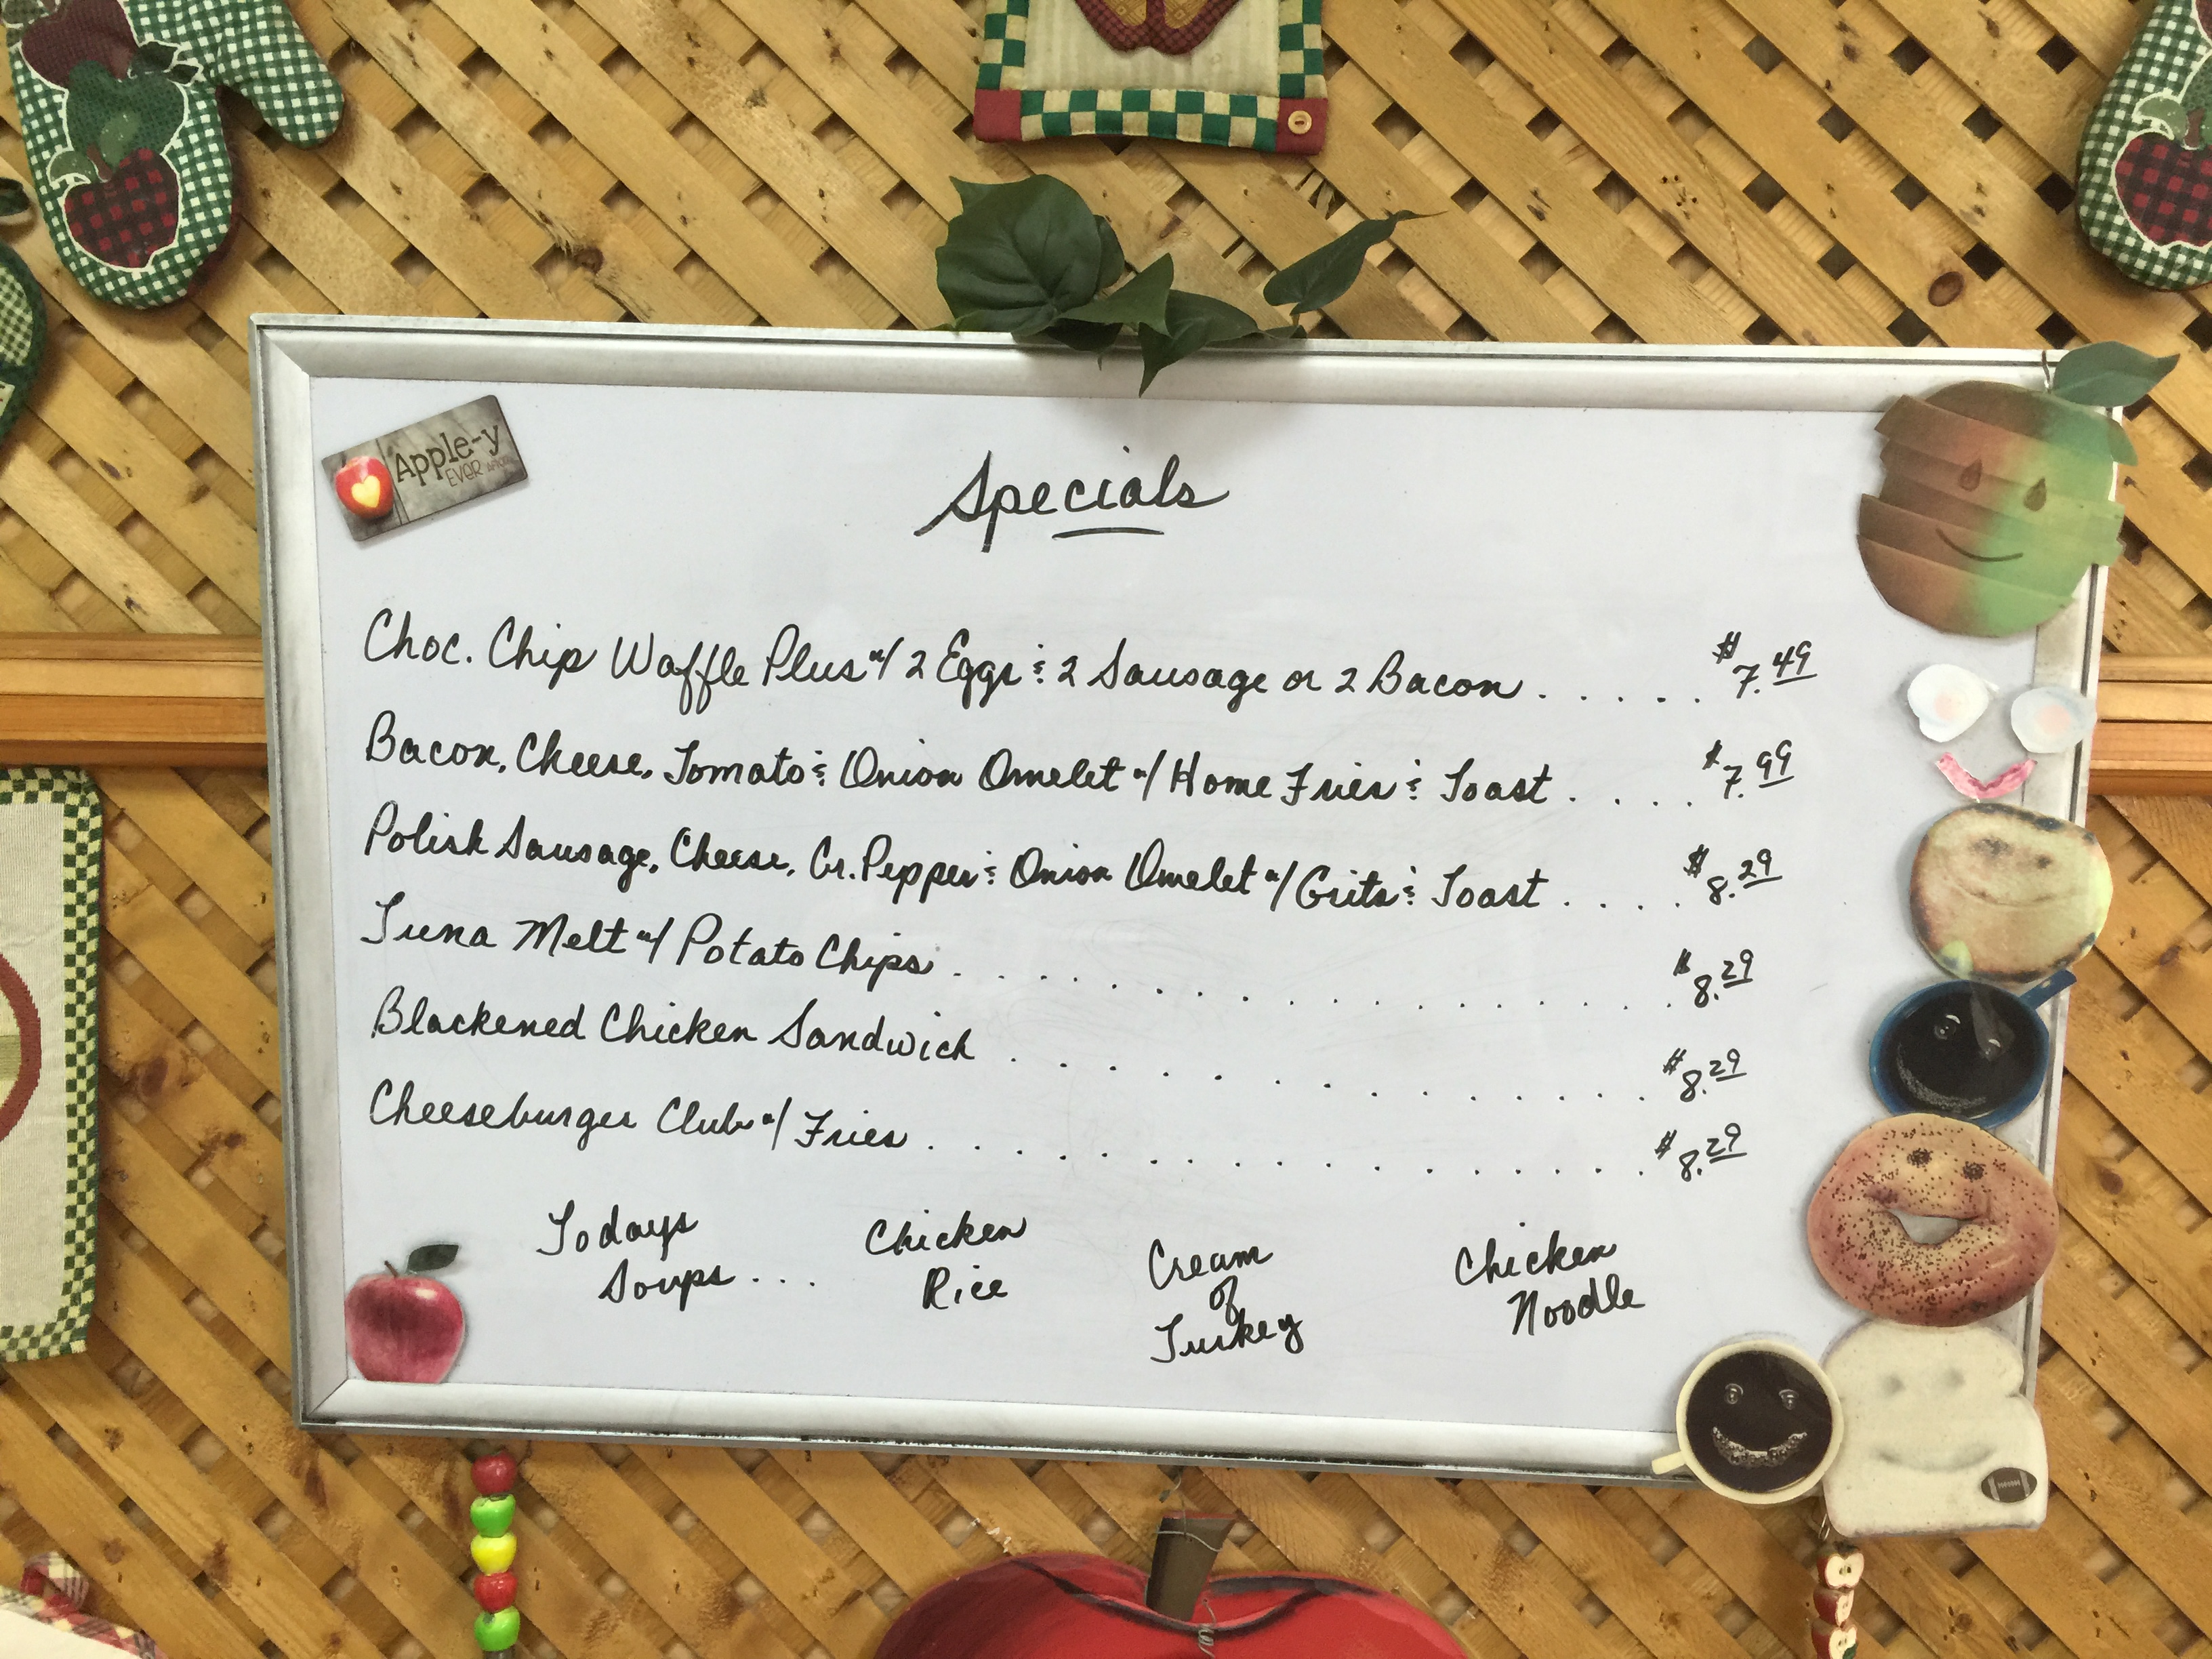 Apple-y
EVER AFTER
Specials
Choc. Chip Waffle Plus w/ 2 Eggs & 2 Sausage or 2 Bacon . . . . . $7.49
Bacon, Cheese, Tomato & Onion Omelet w/ Home Fries & Toast . . . . $7.99
Polish Sausage, Cheese, Gr. Pepper & Onion Omelet w/ Grits & Toast . . . . $8.29
Tuna Melt w/ Potato Chips . . . . . . . . . . . . . . . . . $8.29
Blackened Chicken Sandwich . . . . . . . . . . . . $8.29
Cheeseburger Club w/ Fries . . . . . . . . . . . . . . . . . $8.29
Todays
Soups . . .
Chicken
Rice
Cream
of
Turkey
Chicken
Noodle